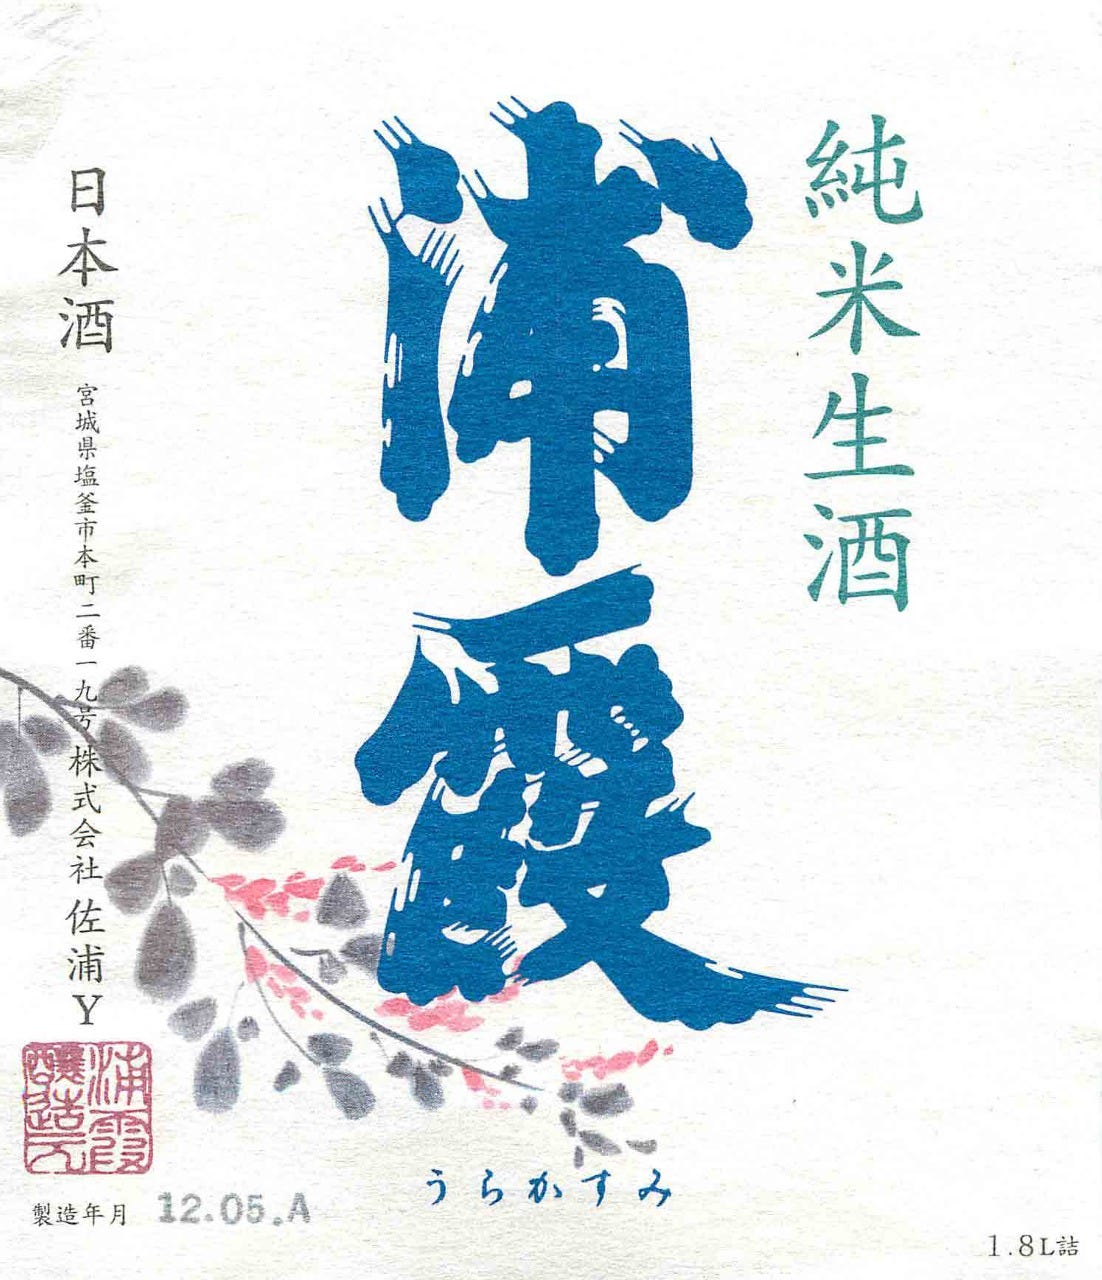 純米生酒
浦霞
うらかすみ
日本酒
宮城県塩釜市本町二番一九号 株式会社 佐浦Y
浦霞
醸造元
製造年月 12.05.A
1.8L詰